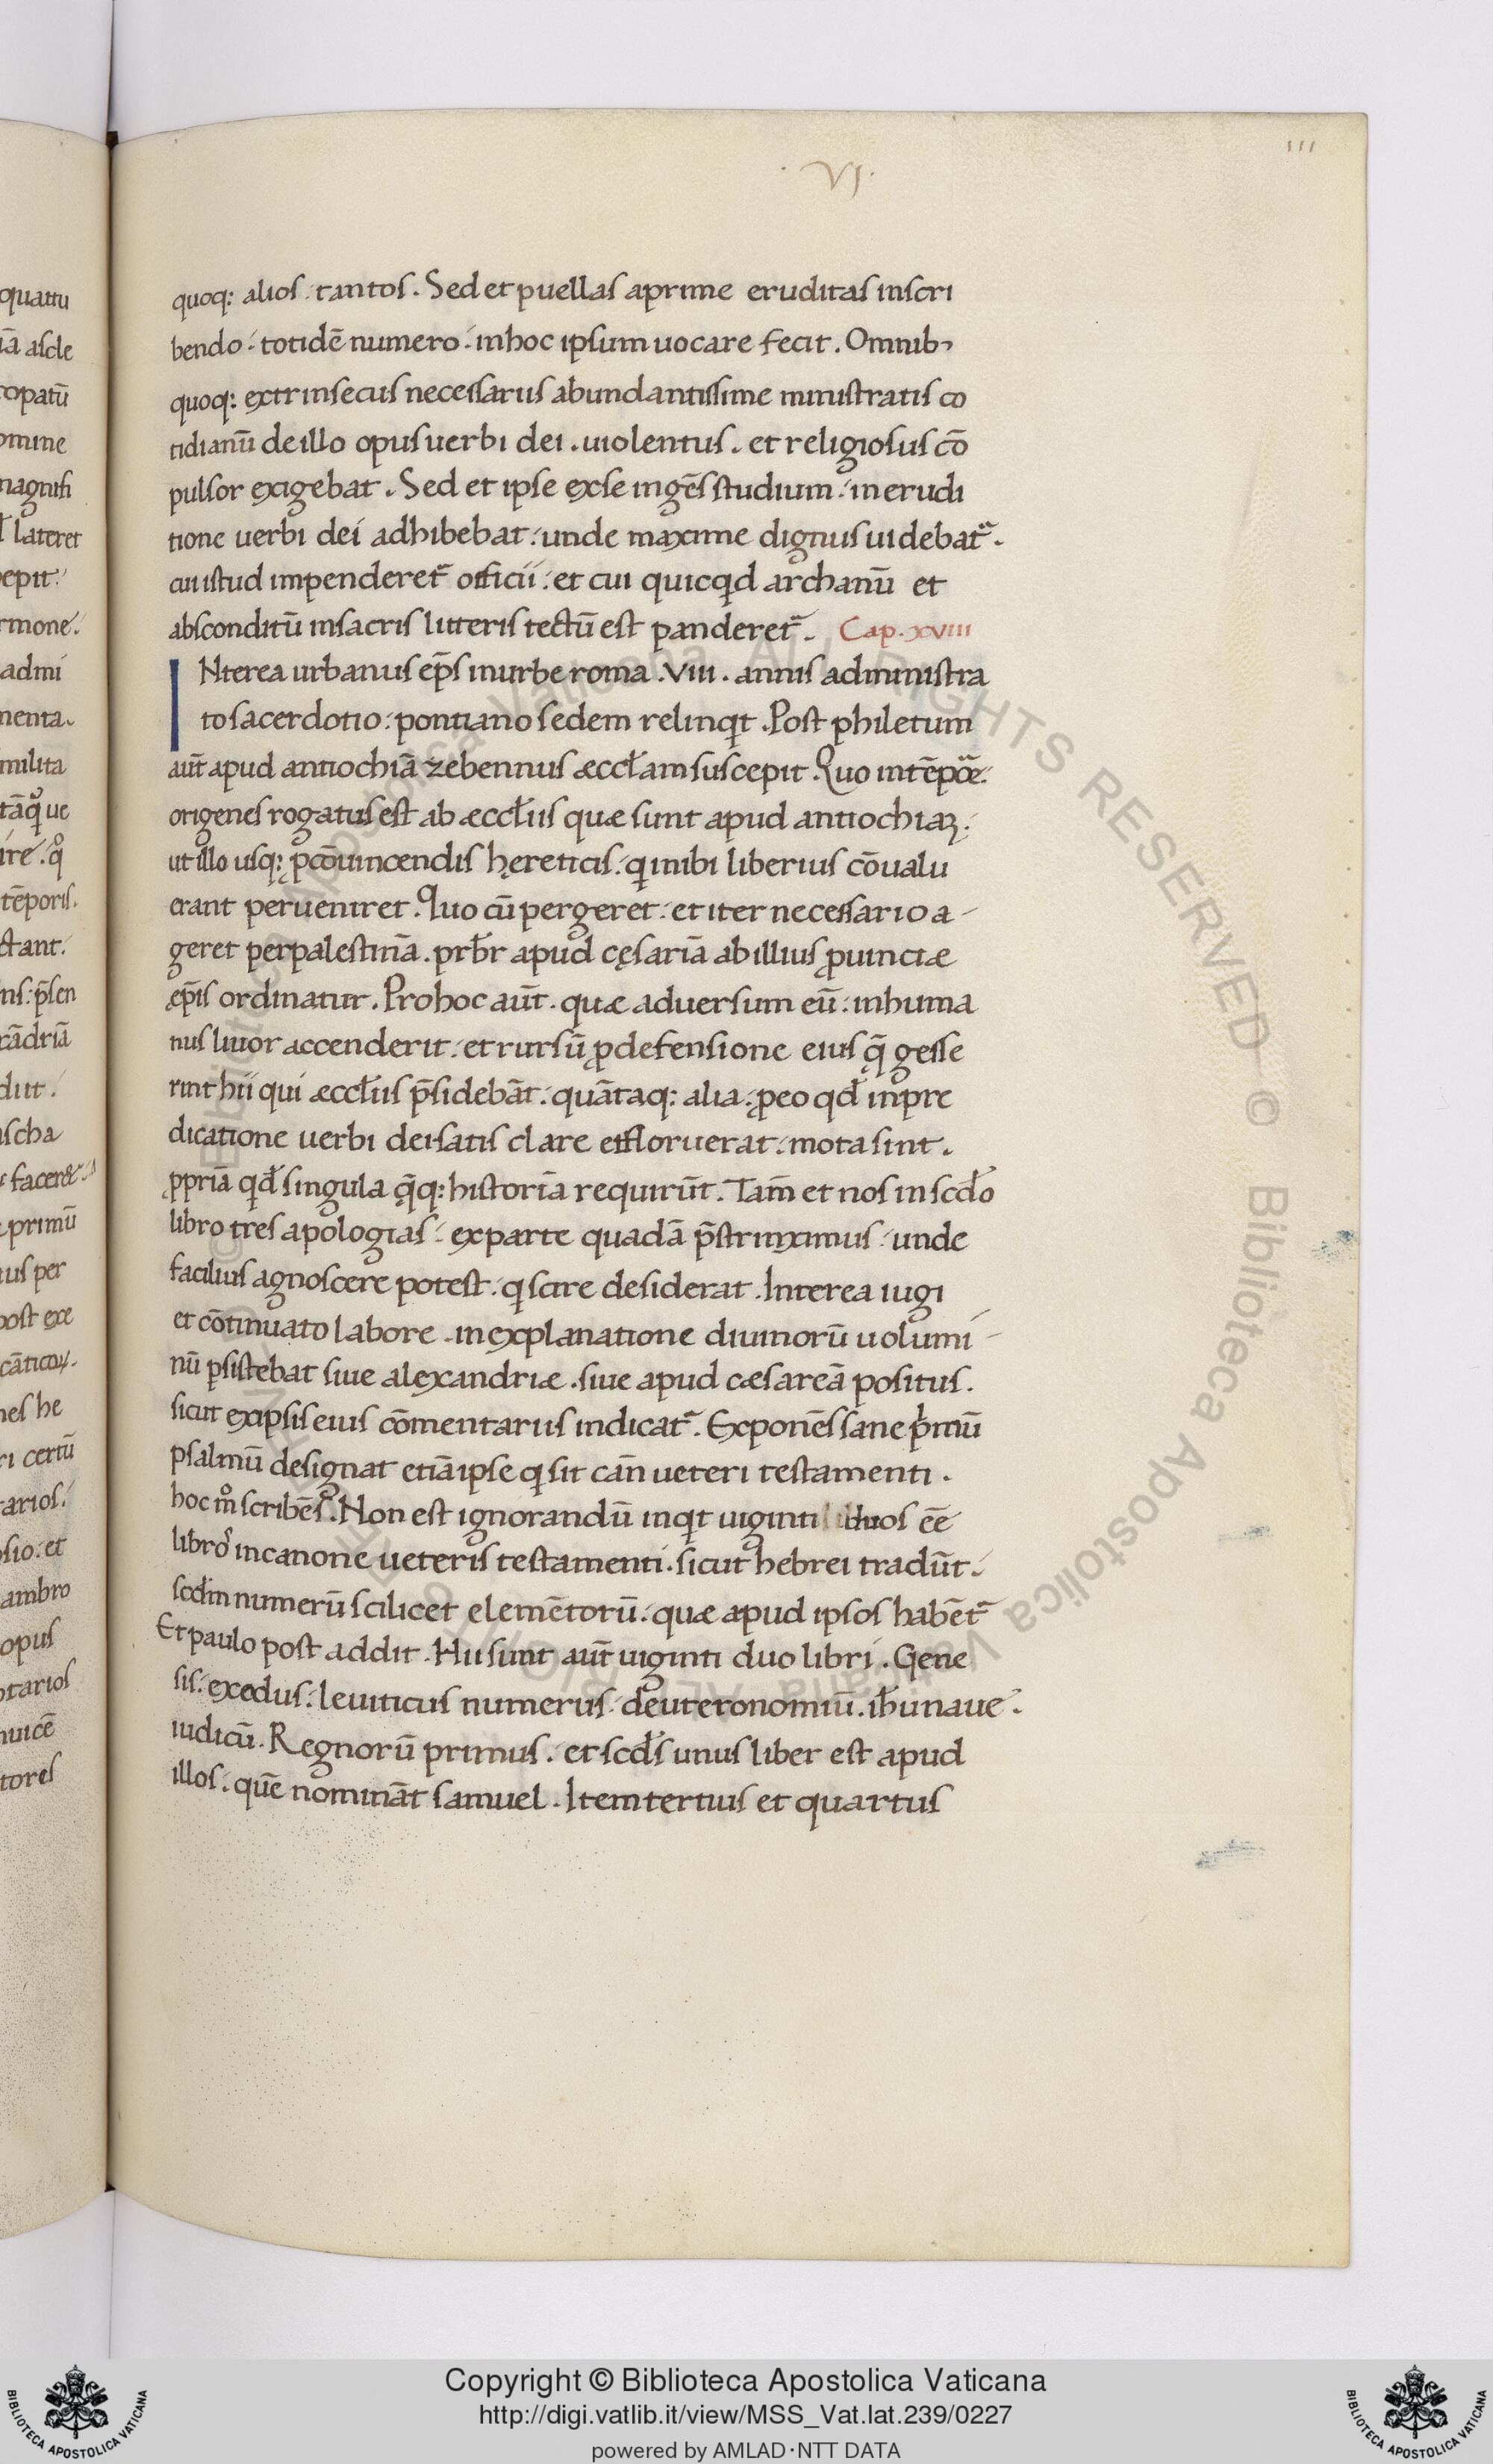 ·VI·
III
quoq: alios: tantos. Sed et puellas aprime eruditas inscri
bendo: totidē numero: in hoc ipsum uocare fecit. Omnib;
quoq: extrinsecus necessariis abundantissime ministratis co
tidianū de illo opus uerbi dei. uiolentus. et religiosus cō
pulsor exigebat. Sed et ipse ex se ingēs studium: in erudi
tione uerbi dei adhibebat: unde maxime dignus uidebat᷑.
cui istud impenderet᷑ officii: et cui quicqd archanū et
absconditū in sacris litteris tectū est panderet᷑. Cap. xviii
INterea urbanus ep̄s in urbe roma .viii. annis administra
to sacerdotio: pontiano sedem relinqt. Post philetum
aut̄ apud antiochiā zebennus æccłam suscepit. Quo in tēpore:
origenes rogatus est ab æccłiis quæ sunt apud antiochiaꝝ:
ut illo usq: ꝑ cōuincendis hęreticis: q inibi liberius cōualu
erant perueniret. Quo cū pergeret: et iter necessario a-
geret per palestinā. prb̄r apud cęsariā ab illius ꝓuinciæ
æp̄is ordinatur. Pro hoc aut̄. quæ aduersum eū: inhuma
nus liuor accenderit: et rursū ꝓ defensione eius q̄ gesse
rint hii qui æccłiis p̄sidebāt: quātaq: alia: ꝓ eo qđ in pre
dicatione uerbi dei satis clare effloruerat: mota sint.
ꝓpriā qđ singula q̄q: historiā requirūt. Tam̄ et nos in scđo
libro tres apologias: ex parte quadā p̄strinximus: unde
facilius agnoscere potest: q scire desiderat. Interea iugi
et cōtinuato labore. in explanatione diuinorū uolumi-
nū ꝑsistebat siue alexandriæ. siue apud cæsareā positus.
sicut ex ipsis eius cōmentariis indicat᷑. Exponēs sane pimū
psalmū designat etiā ipse q sit can̄ ueteri testamenti.
hoc m̊ scribēs. Non est ignorandū inqt uiginti duos eē
libros in canone ueteris testamenti. sicut hebrei tradūt:
scđm numerū scilicet elemētorū: quæ apud ipsos habēt᷑
Et paulo post addit. Hii sunt aut̄ uiginti duo libri. Gene
sis: exodus: leuiticus numerus: deuteronomiū. ihū naue.
iudicū. Regnorū primus: et scđs unus liber est apud
illos: quē nomināt samuel. Item tertius et quartus
Copyright © Biblioteca Apostolica Vaticana
http://digi.vatlib.it/view/MSS_Vat.lat.239/0227
powered by AMLAD·NTT DATA